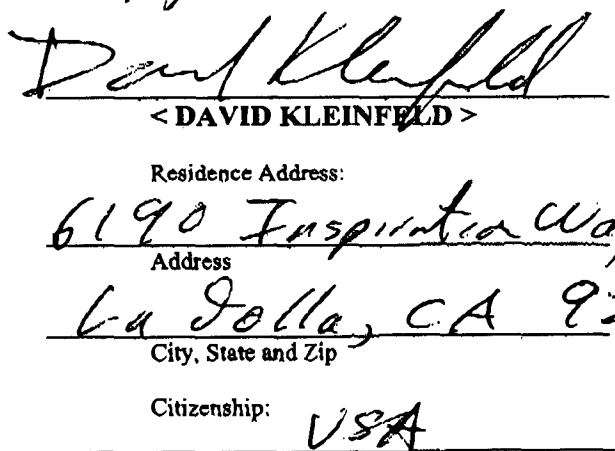 David Kleinfeld
< DAVID KLEINFELD >
Residence Address:
6190 Inspiration
Address
La Jolla, CA
City, State and Zip
Citizenship: USA